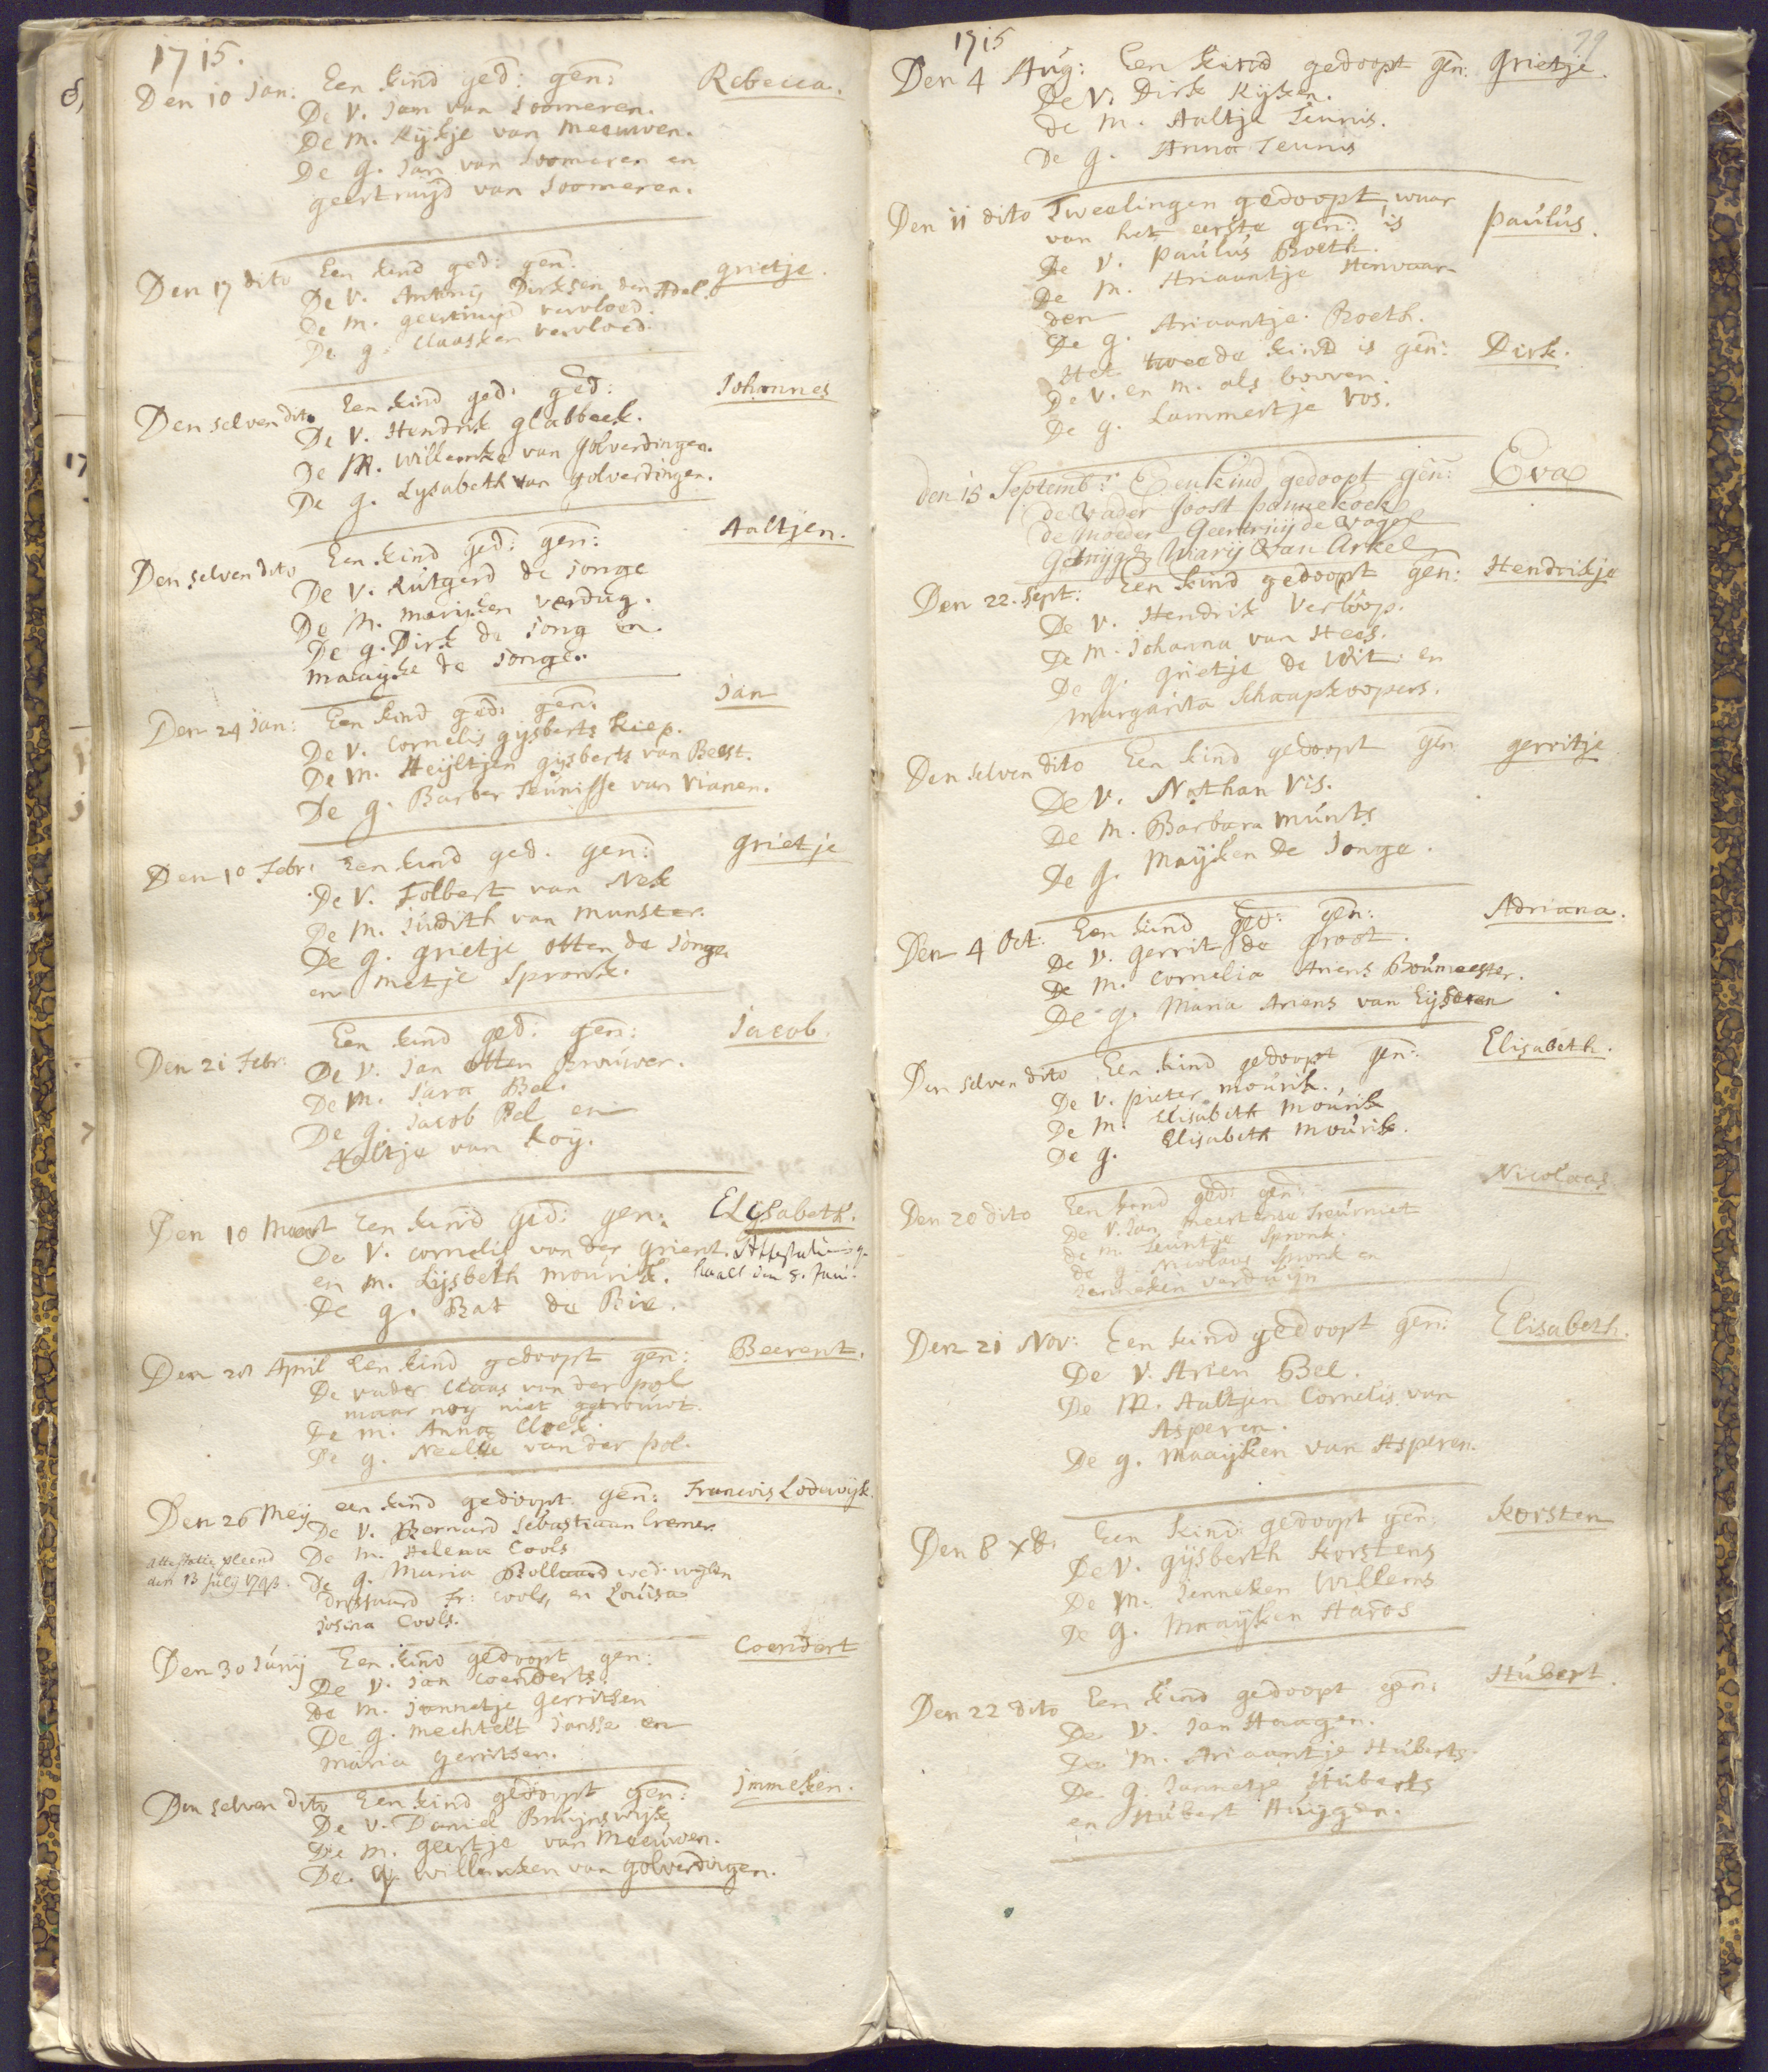 1715.
Den 10 Jan: Een kind ged: gen: Rebecca.
De V. Jam van Soomeren.
De M. Kijkje van Meeuwen.
De g. Jan van Soomeren en
geertruijd van Soomeren.
Den 17 dito Een kind ged: gen: grietje.
De V. Antonij Dirksen den Adel.
De M. geertruijd vervloed.
De g. Claasken vervloed.
Den selven dito Een kind ged: ged: Johannes
De V. Hendrik glabbeek.
De M. Willemke van golverdingen.
De g. Lysabeth van golverdingen.
Den selven dito Een kind ged: gen: Aaltjen.
De V. Rutgerd de jonge
De M. Marijken verdug.
De g. Dirk de jong en
Maaijke de jonge.
Den 24 Jan: Een kind ged: gen: Jan
De V. Cornelis gijsberts Kiep.
De M. Heijltjen gijsberts van Beest.
De g. Barber Teunisse van Vianen.
Den 10 Febr: Een kind ged. gen: grietje
De V. Folbert van Nek
De M. Judith van Munster.
De g. grietje Otten de jonge
en Metje Spronk.
Een kind ged: gen: Jacob.
Den 21 Febr: De V. Jan Otten Brouwer.
De M. Sara Bel.
De g. Jacob Bel en
Aaltje van Roij.
Den 10 Maart Een kind ged: gen: Elysabeth.
De V. Cornelis van der Grient. Attestatie ge-
en M. Lijsbeth Mourik. haalt den 8. Juni.
De g. Bat de Bie.
Den 28 April Een kind gedoopt gen: Beerent.
De vader Claas van der pol
maar nog niet getrouwt.
De m. Anna Cloek.
De g. Neeltje van der pol.
Den 26 Meij een kind gedoopt gen: Francois Lodewijk.
De V. Bernard Sebastiaan Cremer.
De m. Helena Cools
De g. Maria Bollaard wed: wijlen
attestatie
den 13 julij
Fr: Cools, en Louisa
Josina Cools.
Den 30 Junij Een kind gedoopt gen: Coendert
De V. Jan Coenderts.
De M. Jannetje Gerritsen
De g. Mechtelt Jansse en
Maria Gerritsen.
Den selven dito Een kind gedoopt gen: Jmmeken.
De V. Daniel Bruijnswijk
De M. geertje van Meeuwen.
De g. Willemken van golverdingen.
1715 79
Den 4 Aug: Een kind gedoopt gen: Grietje.
De V. Dirk Kijken.
de M. Aaltje Teunis.
De g. Anna Teunis
Den 11 dito Tweelingen gedoopt, waar
van het eerste gen: is Paulus.
De V. Paulus Boeth.
De M. Ariaantje Herwaar-
den
De g. Ariaantje Boeth.
Het tweede kind is gen: Dirk.
De V. en M. als boven.
De g. Lammertje Vos.
Den 15 Septemb: Een kind gedoopt gen: Eva
de vader Joost Pannekoek
de moeder Geertruij de Vogel
Getuyge Marij Van Arkel
Den 22. Sept: Een kind gedoopt gen: Hendrikje
De V. Hendrik Verloop.
De M. Johanna van Hees.
De g. grietje de Wit en
Margarita Schaapkoopers.
Den selven dito Een kind gedoopt gen gerritje
De V. Nathan Vis.
De M. Barbara Munts
De g. Maijken De Jonge.
Den 4 Oct: Een kind ged: gen: Adriana.
De V. Gerrit de Groot.
De M. Cornelia Ariens Boumeester.
De g. Maria Ariens van Eijseren
Den selven dito Een kind gedoopt gen: Elisabeth.
De V. pieter Mourik.
De M. Elisabeth Mourik
De g. Elisabeth Mourik.
Den 20 dito Een kind ged: gen: Nicolaas
De V. Jan Meertense Treurniet
de M. Teuntje Spronk.
de g. Nicolaas Spronk en
Jenneken verduijn
Den 21 Nov: Een kind gedoopt gen: Elisabeth.
De V. Arien Bel.
De M. Aaltjen Cornelis van
Asperen.
De g. Maaijken van Asperen.
Den 8 xb: Een kind gedoopt gen: Korsten
De V. gijsberth Korstens
De M. Jenneken Willems
De g. Maaijken Haros
Den 22 dito Een kind gedoopt gen: Hubert.
De V. Jan Haagen.
De M. Ariaantje Huberts.
De g. Jannetje Huberts
en Hubert Huijgen.